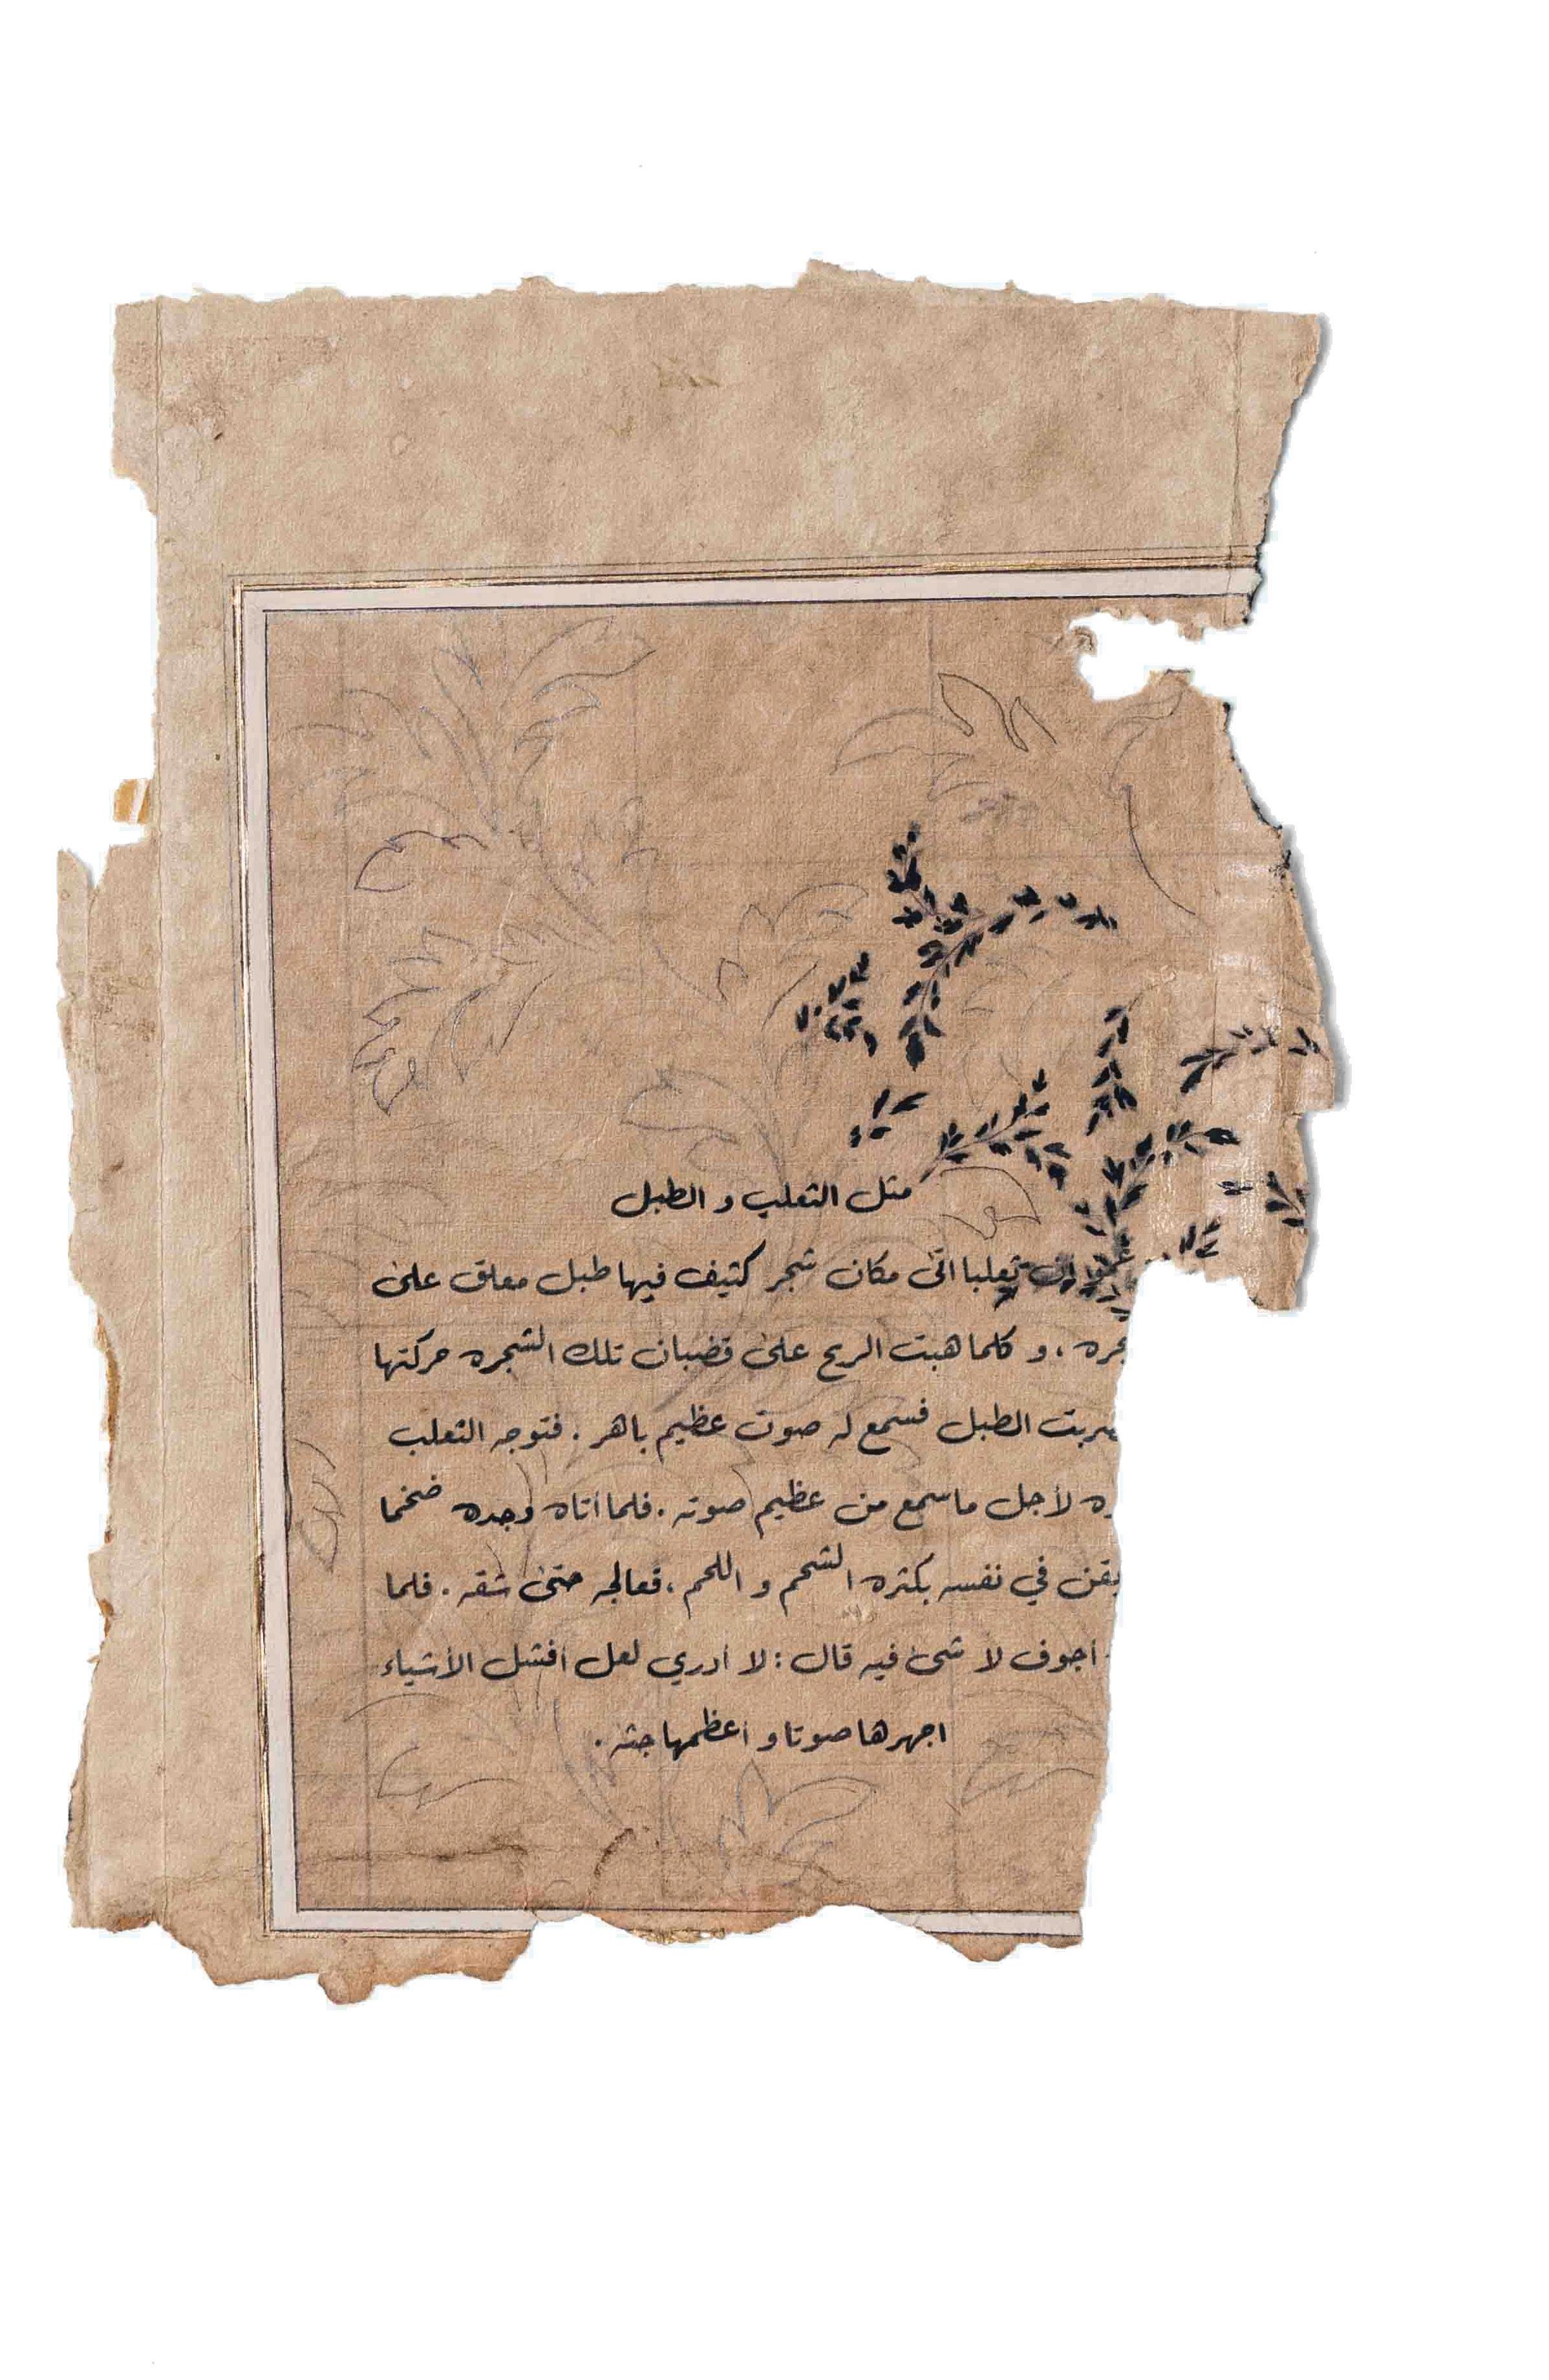 مثل الثعلب و الطبل
ان ثعلبا اتى مكان شجر كثيف فيها طبل معلق على
جره ، و كلما هبت الريح على قضبان تلك الشجره حركتها
ضربت الطبل فسمع له صوت عظيم باهر . فتوجه الثعلب
ره لأجل ما سمع من عظيم صوته . فلما أتاه وجده ضخما
يقن في نفسه بكثره الشحم و اللحم ، فعالجه حتى شقه . فلما
أجوف لا شئ فيه قال : لا أدري لعل أفشل الأشياء
اجهرها صوتا و أعظمها جثه .